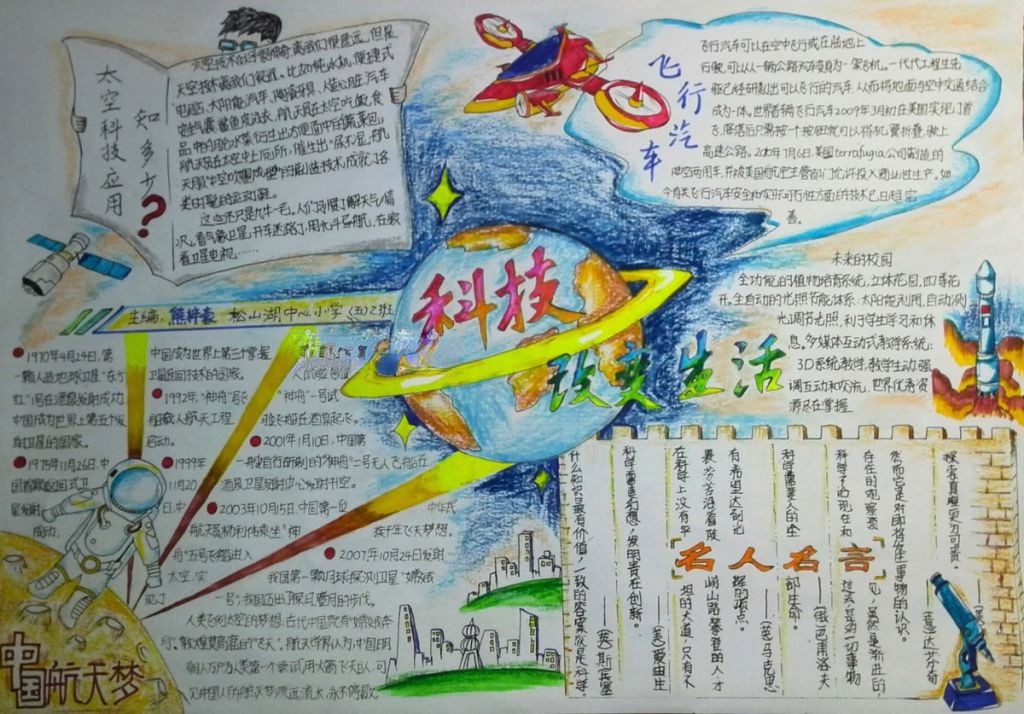 太空科技应用
知多少？
太空技术似乎很神奇，离我们很遥远，但是
太空技术离我们很近。比如纯水机，便携式
电脑、太阳能汽车、陶瓷牙具、人造心脏、汽车
安全气囊、鲨鱼皮泳衣，航天员在太空吃饭，食
品中的脱水菜衍生出方便面中的蔬菜包，
航天员在太空中上厕所，催生出"尿不湿"，航
类耐磨的运动鞋。
这些还只是九牛一毛。人们习惯了解天气情
况，看气象卫星，开车迷路了，用北斗导航，在家
看卫星电视……
飞行汽车
飞行汽车可以在空中飞行或在陆地上
行驶，可以从一辆公路汽车变身为一架飞机。一代代工程生先
驱已经研制出可以飞行的汽车，从而将地面与空中交通结合
成为一体。世界首辆飞行汽车2009年3月初在美国实现了首
飞，降落后只需按一个按钮就可以将机翼折叠，驶上
高速公路。2010年7月6日，美国terrafugia公司制造的
陆空两用车，并被美国航空主管部门允许投入商业性生产。如
今有关飞行汽车安全和实际可行性方面的技术已日趋完
善。
主编：熊梓豪 松山湖中心小学(五)2班
科技
改变生活
未来的校园
全功能的植物培育系统，立体花园，四季花
开。全自动的光照节能体系：太阳能利用，自动测
光调节光照，利于学生学习和休
息。多媒体互动式教学系统：
3D系统教学，教学生动，强
调互动和交流，世界优秀资
源尽在掌握
1970年4月24日，第
一颗人造地球卫星"东方
红"1号在酒泉发射成功，
中国成为世界上第五个发
射卫星的国家。
1975年11月26日，中
国首颗返回式卫
星发射
成功，
中国成为世界上第三个掌握
卫星返回技术的国家。
1992年"神舟"号
船载人航天工程
启动。
1999年
11月20
日，中
"神舟"一号试
验飞船在酒泉起飞。
2001年1月10日，中国第
一艘自行研制的"神舟"二号无人飞船在
酒泉卫星发射中心发射升空。
2003年10月5日，中国第一位
航天员杨利伟乘坐"神
舟"五号飞船进入
太空，实
现了
中华民
族千年飞天梦想。
2007年10月24日发射
我国第一颗月球探测卫星"嫦娥
一号"，我国迈出了探月登月的步伐。
人类飞向太空的梦想，古代中国就有"嫦娥奔
月"、敦煌莫高窟的"飞天"。航天学界认为，中国明
朝人万户为人类第一个尝试用火箭飞天的人，可
见中国人的航天梦源远流长，永不停歇。
中国航天梦
名人名言
探索真理更为可贵。
然而它是对即将发生事物的认识。
——(意)达·芬奇
存在的观察。
科学了的现在和
过去是第一切事物
科学需要人的全
部生命。
——(俄)巴甫洛夫
在科学上没有平
坦的大道，只有不
畏劳苦沿着陡
峭山路攀登的人，才
有希望达到光
辉的顶点。
——(德)马克思
科学需要幻想，发明贵在创新。
——(美)爱迪生
什么知识最有价值，一致的答案就是科学。
——(英)斯宾塞